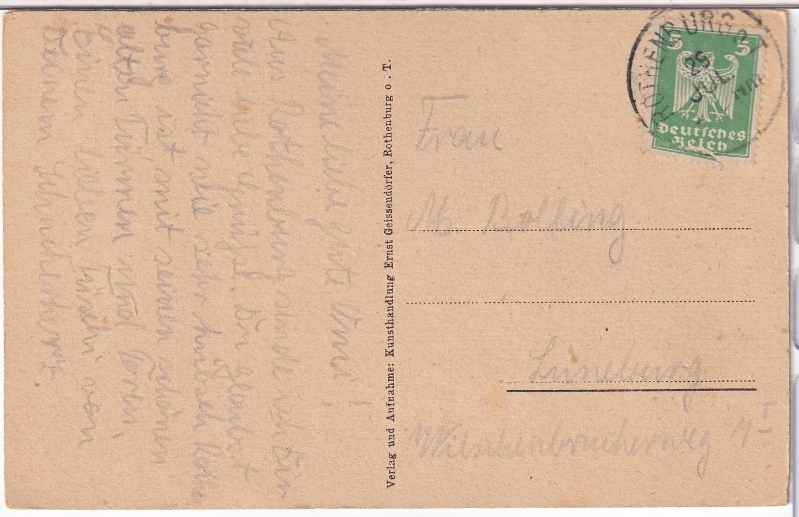 Meine liebe gute Omi!
Aus Rothenburg sende ich Dir
viele liebe Grüße. Du glaubst
garnicht wie sehr hübsch Rothen
burg ist mit seinen schönen
alten Türmen und Toren,
Einen lieben von
Deinem
Verlag und Aufnahme: Kunsthandlung Ernst Geissendörfer, Rothenburg o. T.
ROTHENBURG
25
JUL.
5 5
Deutsches
Reich
Frau
M. Bolling
Lüneburg
Wilschenbrucherweg 1 I